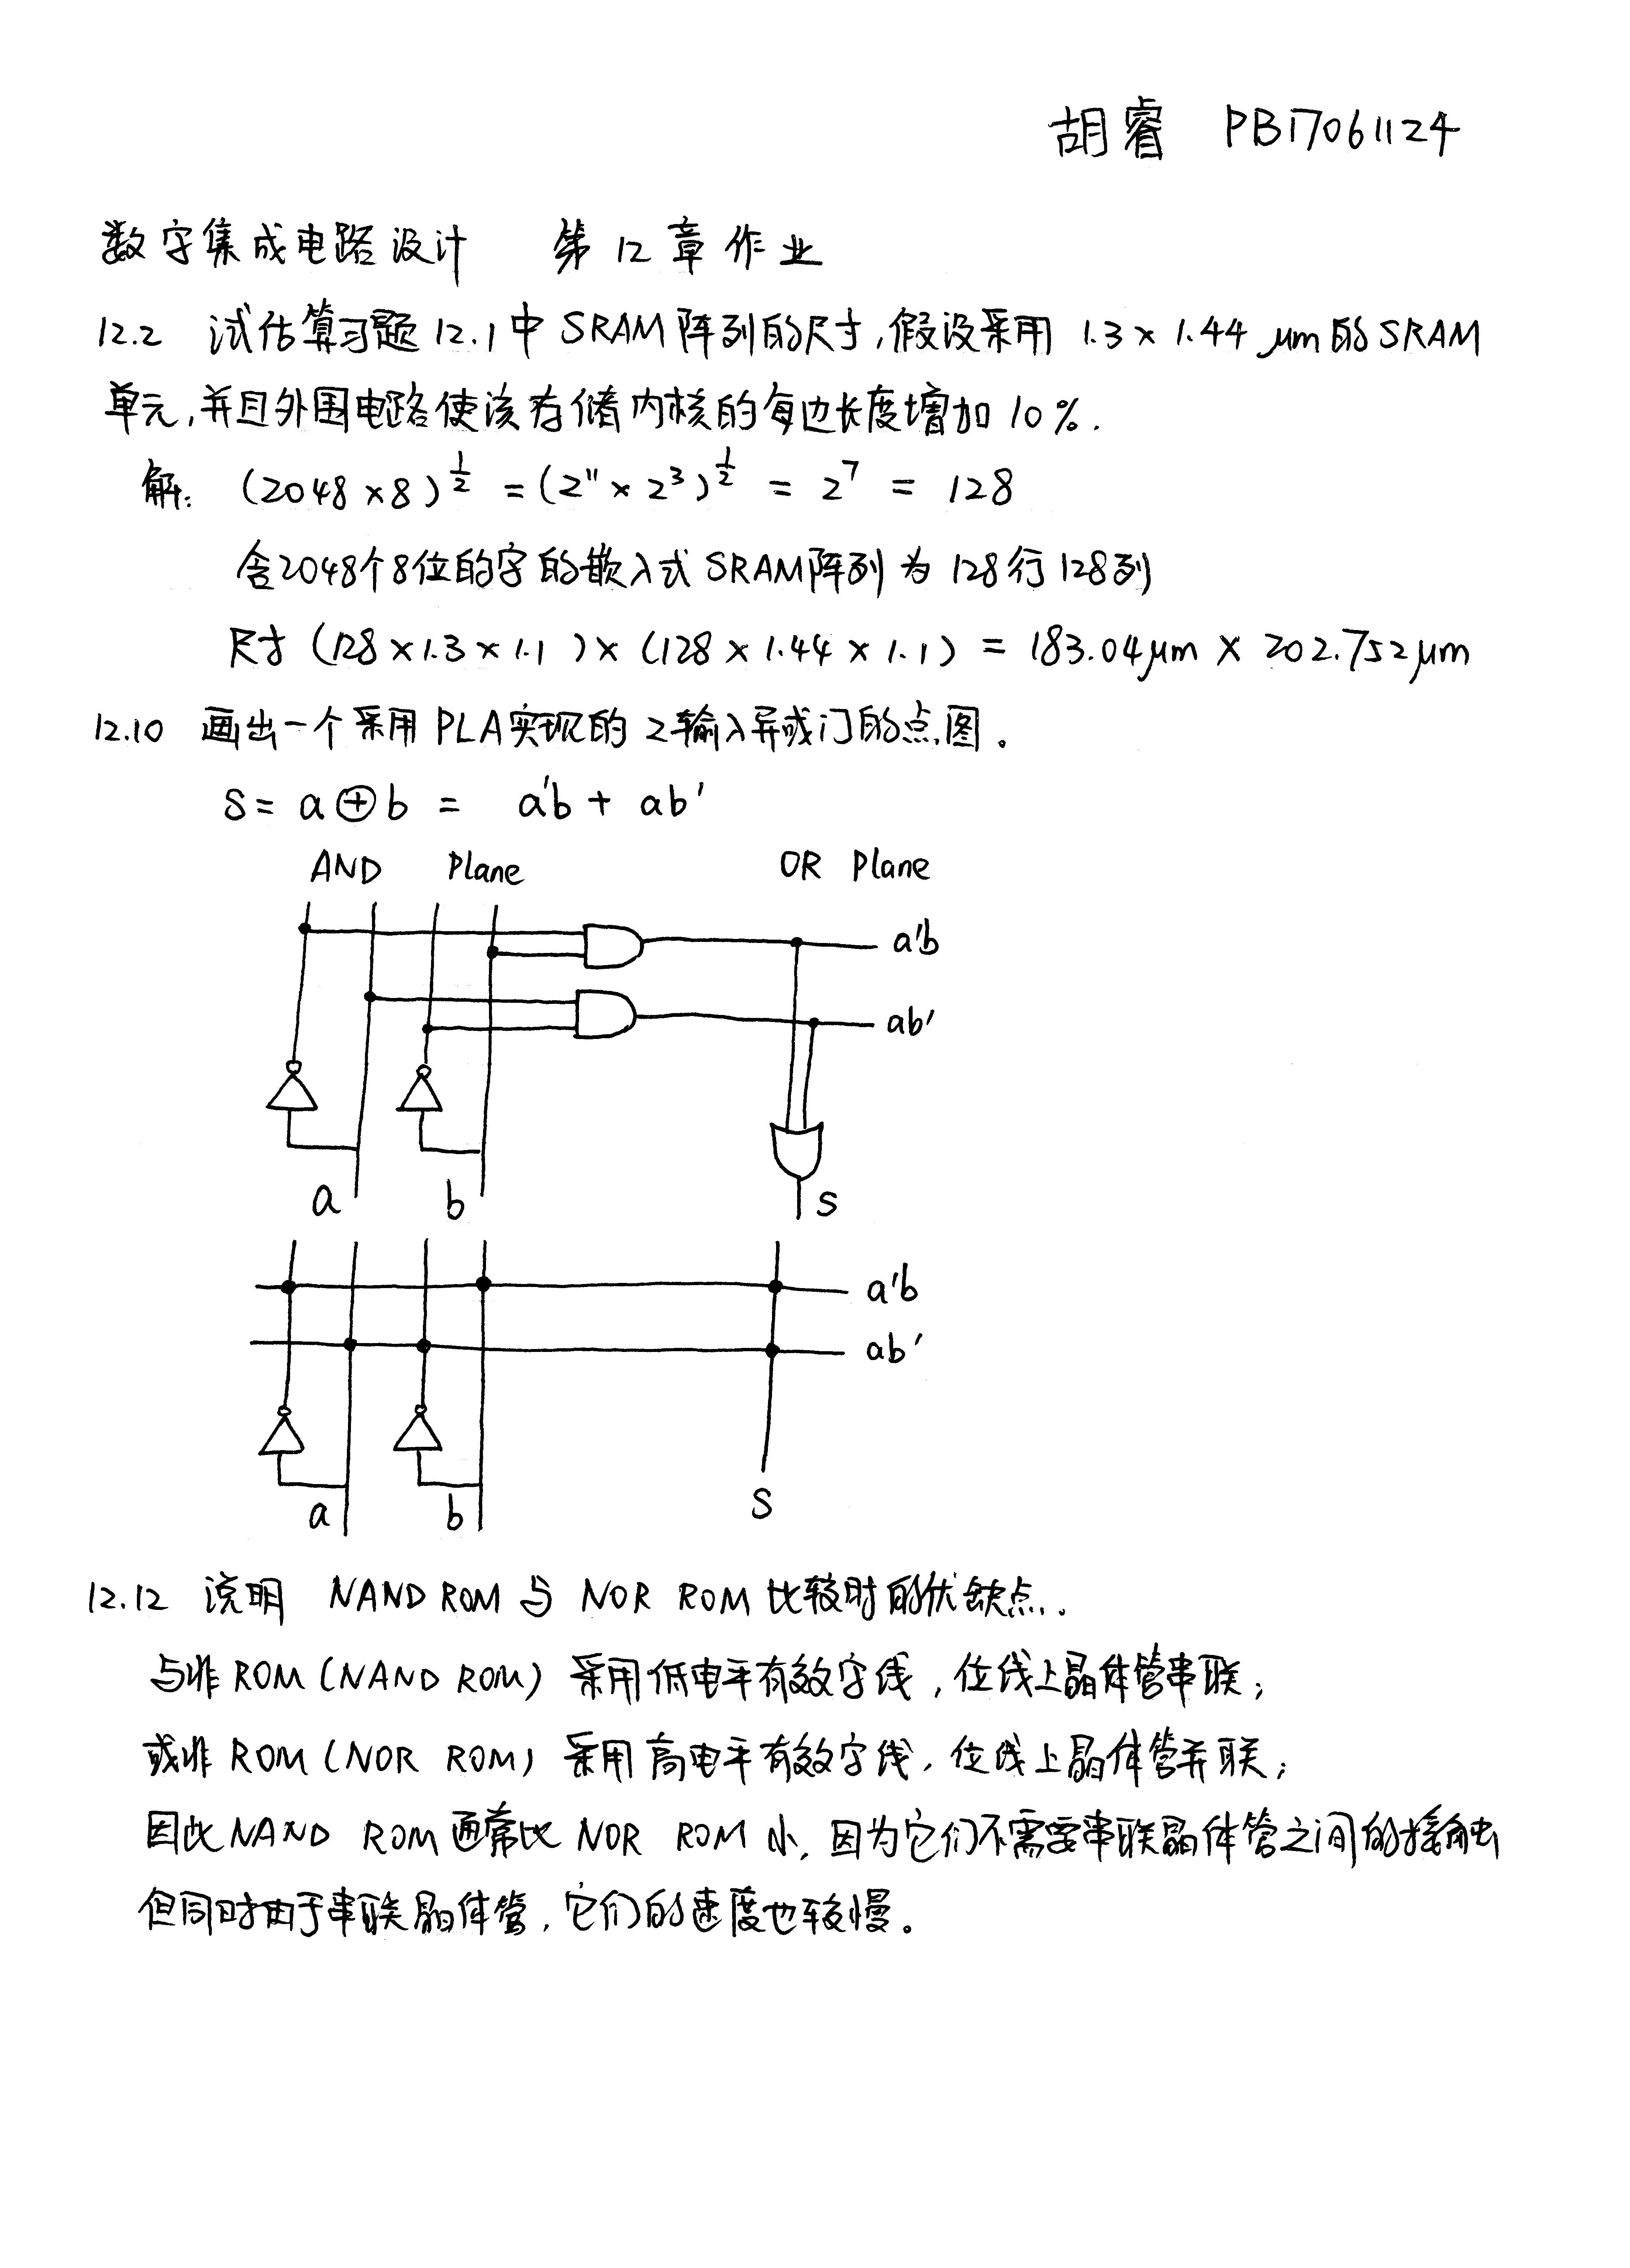 胡睿 PB17061124
数字集成电路设计 第12章作业
12.2 试估算习题12.1中SRAM阵列的尺寸,假设采用 1.3 × 1.44 μm的SRAM
单元,并且外围电路使该存储内核的每边长度增加10%.
解: (2048×8)^{1/2} = (2^{11} × 2^3)^{1/2} = 2^7 = 128
含2048个8位的字的嵌入式SRAM阵列为128行128列
尺寸 (128×1.3×1.1)×(128×1.44×1.1) = 183.04μm × 202.752μm
12.10 画出一个采用PLA实现的2输入异或门的点图。
S = a⊕b = a'b + ab'
AND Plane OR Plane
a'b
ab'
a b S
a'b
ab'
a b S
12.12 说明 NAND ROM与 NOR ROM 比较时的优缺点.
与非ROM(NAND ROM) 采用低电平有效字线,位线上晶体管串联;
或非ROM(NOR ROM) 采用高电平有效字线,位线上晶体管并联;
因此NAND ROM通常比NOR ROM小,因为它们不需要串联晶体管之间的接触
但同时由于串联晶体管,它们的速度也较慢。